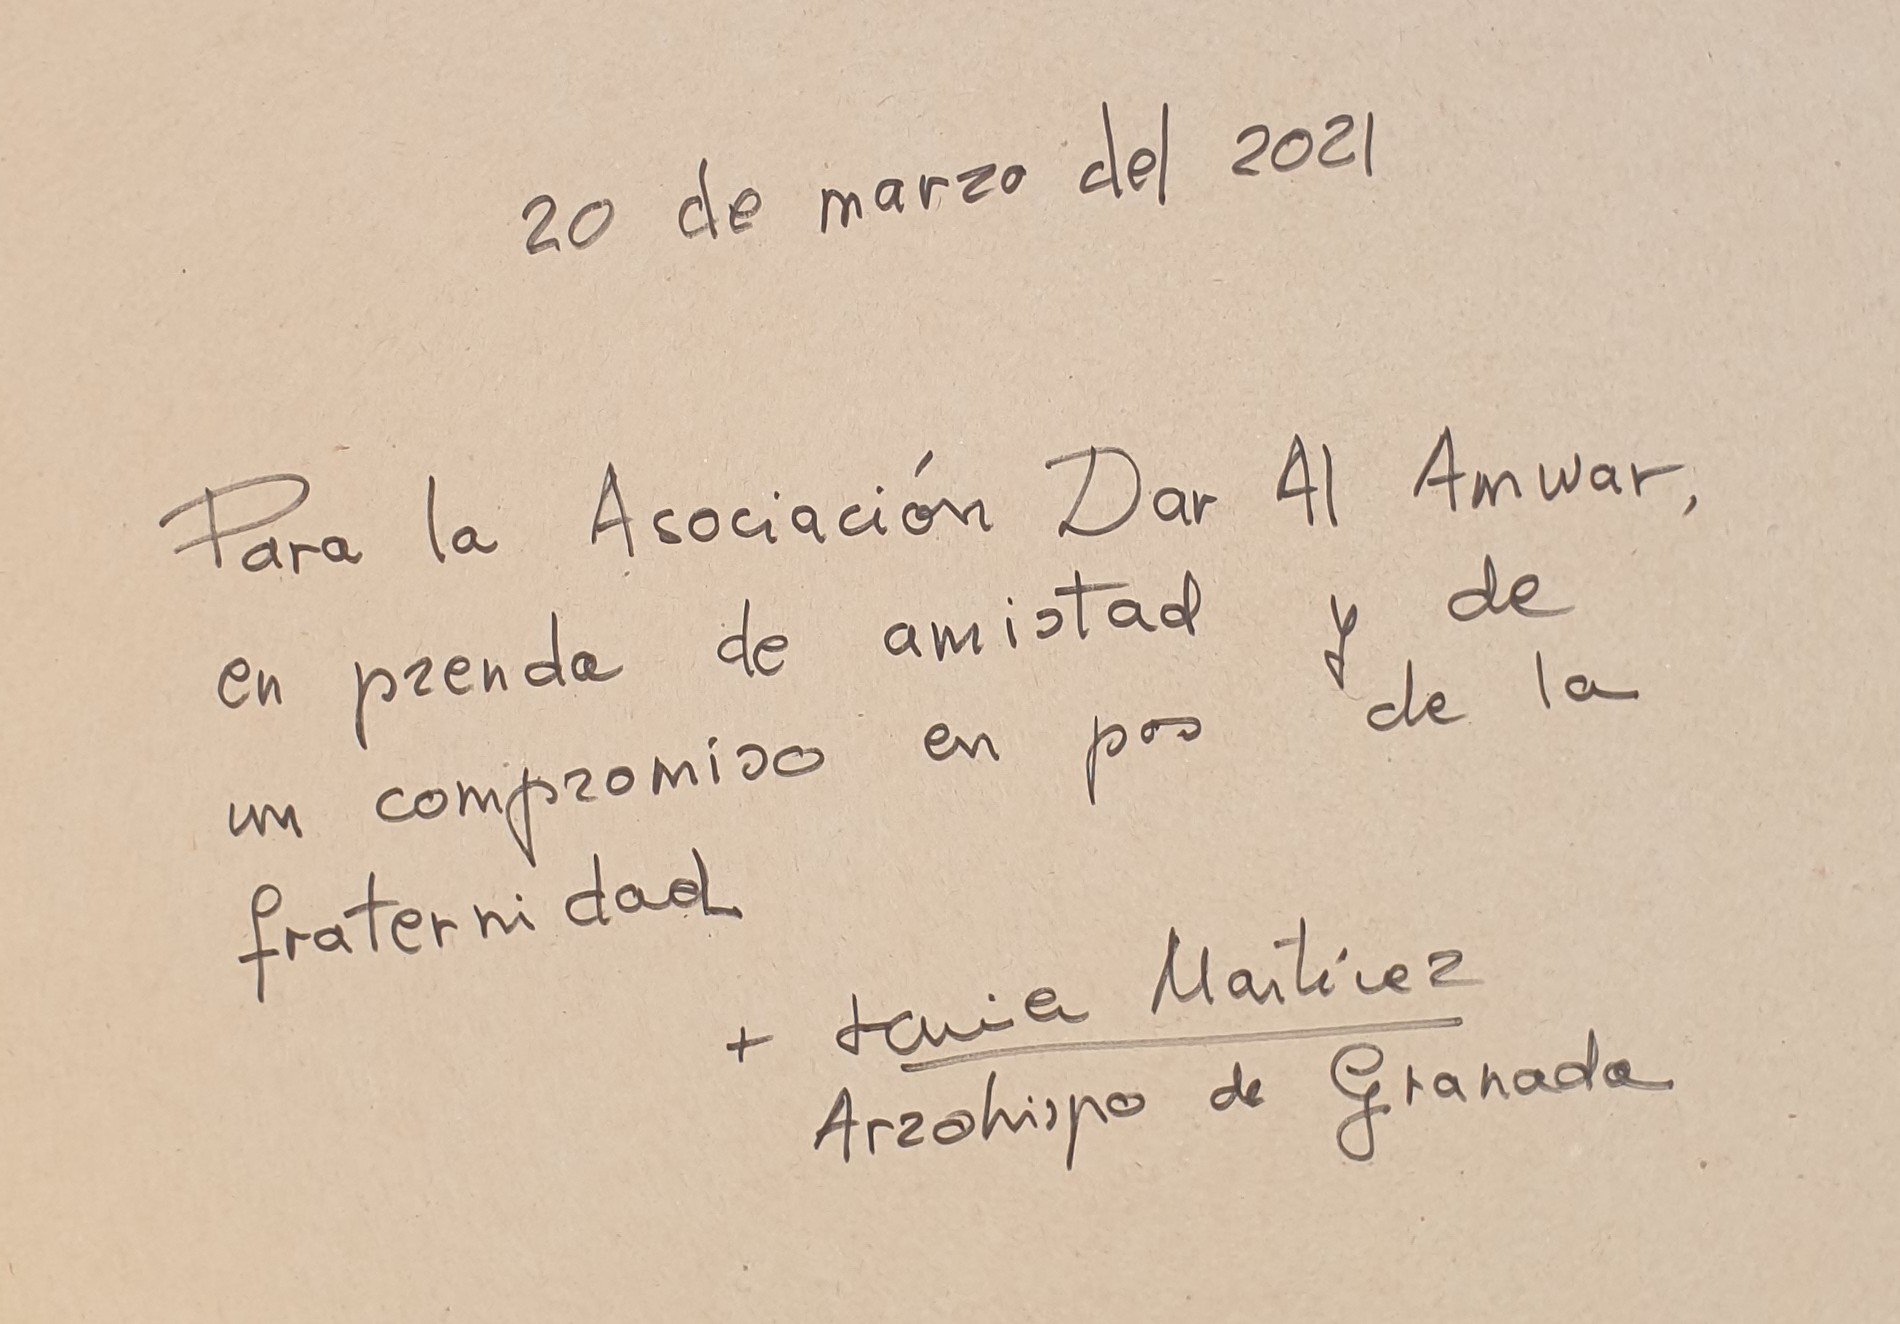 20 de marzo del 2021
Para la Asociación Dar Al Amwar,
en prenda de amistad y de
un compromiso en pos de la
fraternidad
+ Javier Martínez
Arzobispo de Granada